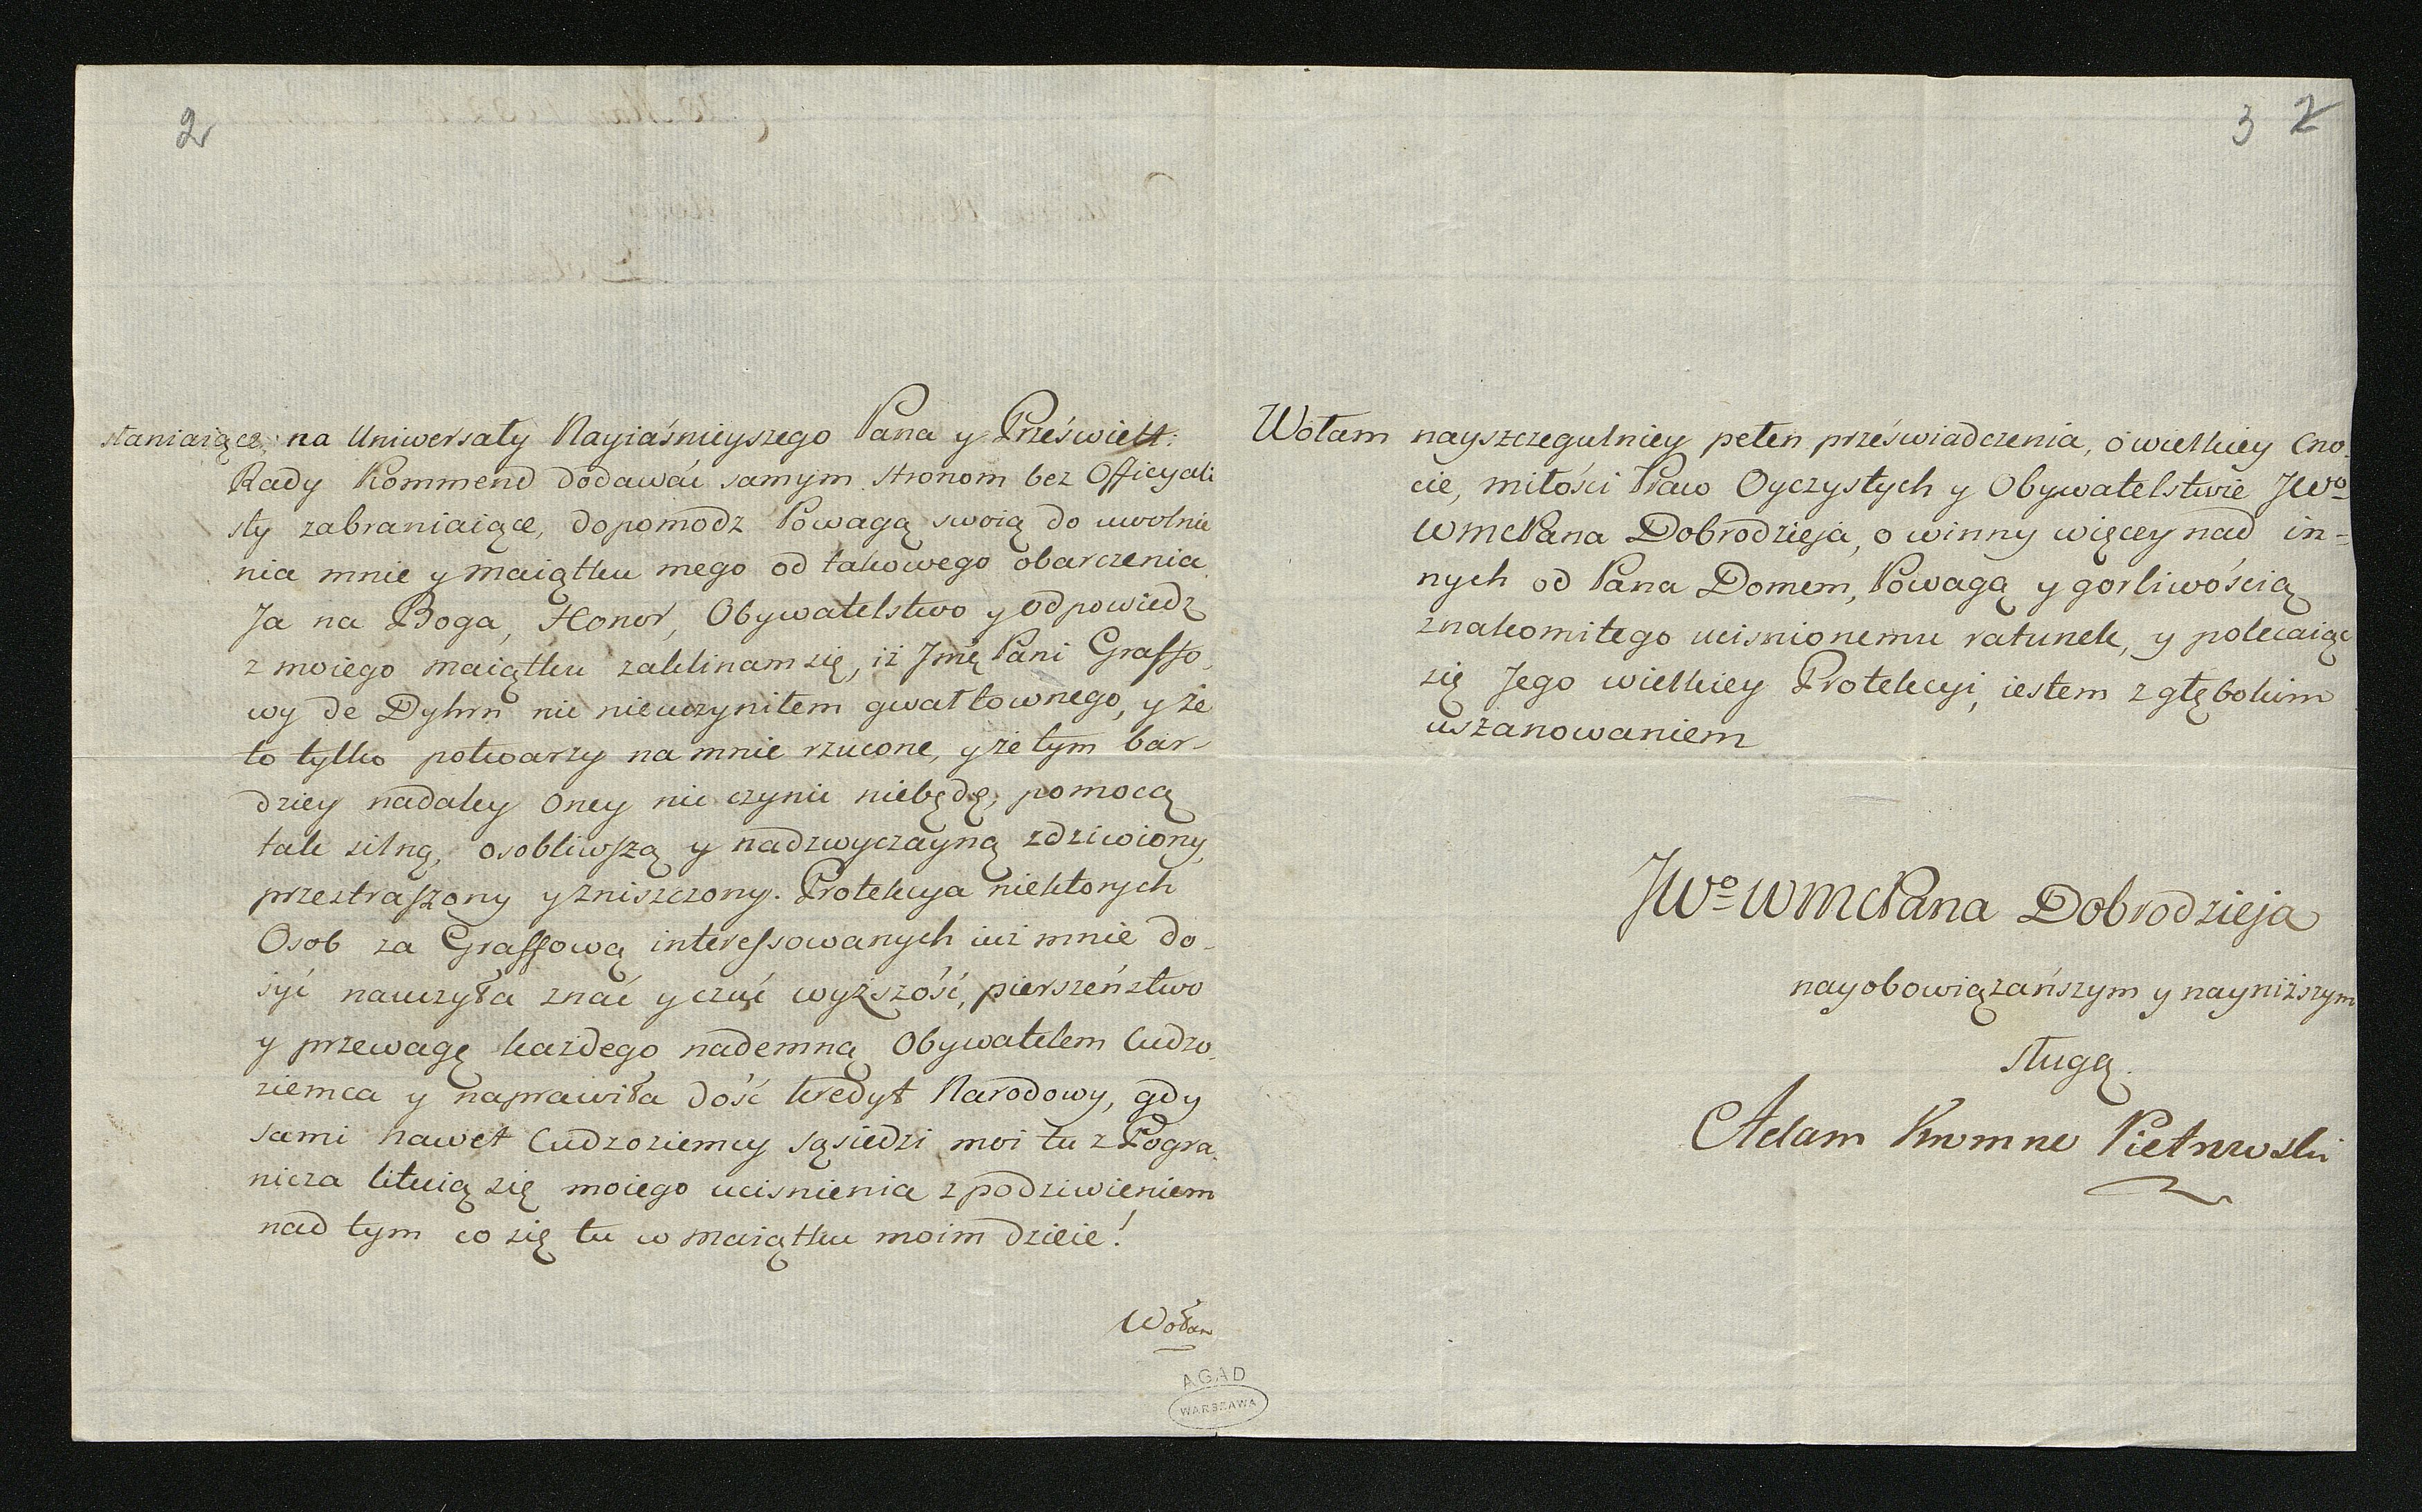 2
staniaiące, na Uniwersały Nayiaśnieyszego Pana y Przeświett:
Rady Kommend dodawać samym stronom bez Officyali
sty zabraniaiące, dopomodz Powagą swoią do uwolnie
nia mnie y maiątku mego od takowego obarczenia.
Ja na Boga, Honor, Obywatelstwo y odpowiedz
z moiego maiątku zaklinam się, iż Jmę Pani Graffo,
wy de Dyhrn nic nieuczyniłem gwałtownego, y że
to tylko potwarzy na mnie rzucone, y że tym bar-
dziey nadaley Oney nic czynić niebędę, pomocą
tak silną, osobliwszą y nadzwyczayną zdziwiony,
przestraszony y zniszczony. Protekcya niektorych
Osob za Graffową interessowanych iuż mnie do-
syć nauczyła znać y czuć wyższość, pierszeństwo
y przewagę każdego nademną Obywatelem Cudzo,
ziemca y naprawiła dość kredyt Narodowy, gdy
sami nawet Cudzoziemcy sąsiedzi moi tu z Pogra,
nicza lituią się moiego ucisnienia z podziwieniem
nad tym co się tu w maiątku moim dzieie!
Wołam
AGAD
WARSZAWA
3 2
Wołam nayszczegulniey pełen przeświadczenia, o wielkiey Cno,
cie, miłości Praw Oyczystych y Obywatelstwie JWo
WMcPana Dobrodzieja, o winny więcey nad in=
nych od Pana Domem, Powagą y gorliwością
znakomitego ucisnionemu ratunek, y polecaiąc
się Jego wielkiey Protekcyi, iestem z głębokim
uszanowaniem
JWo WMcPana Dobrodzieja
nayobowiązańszym y nayniższym
sługą.
Adam Piotrowski